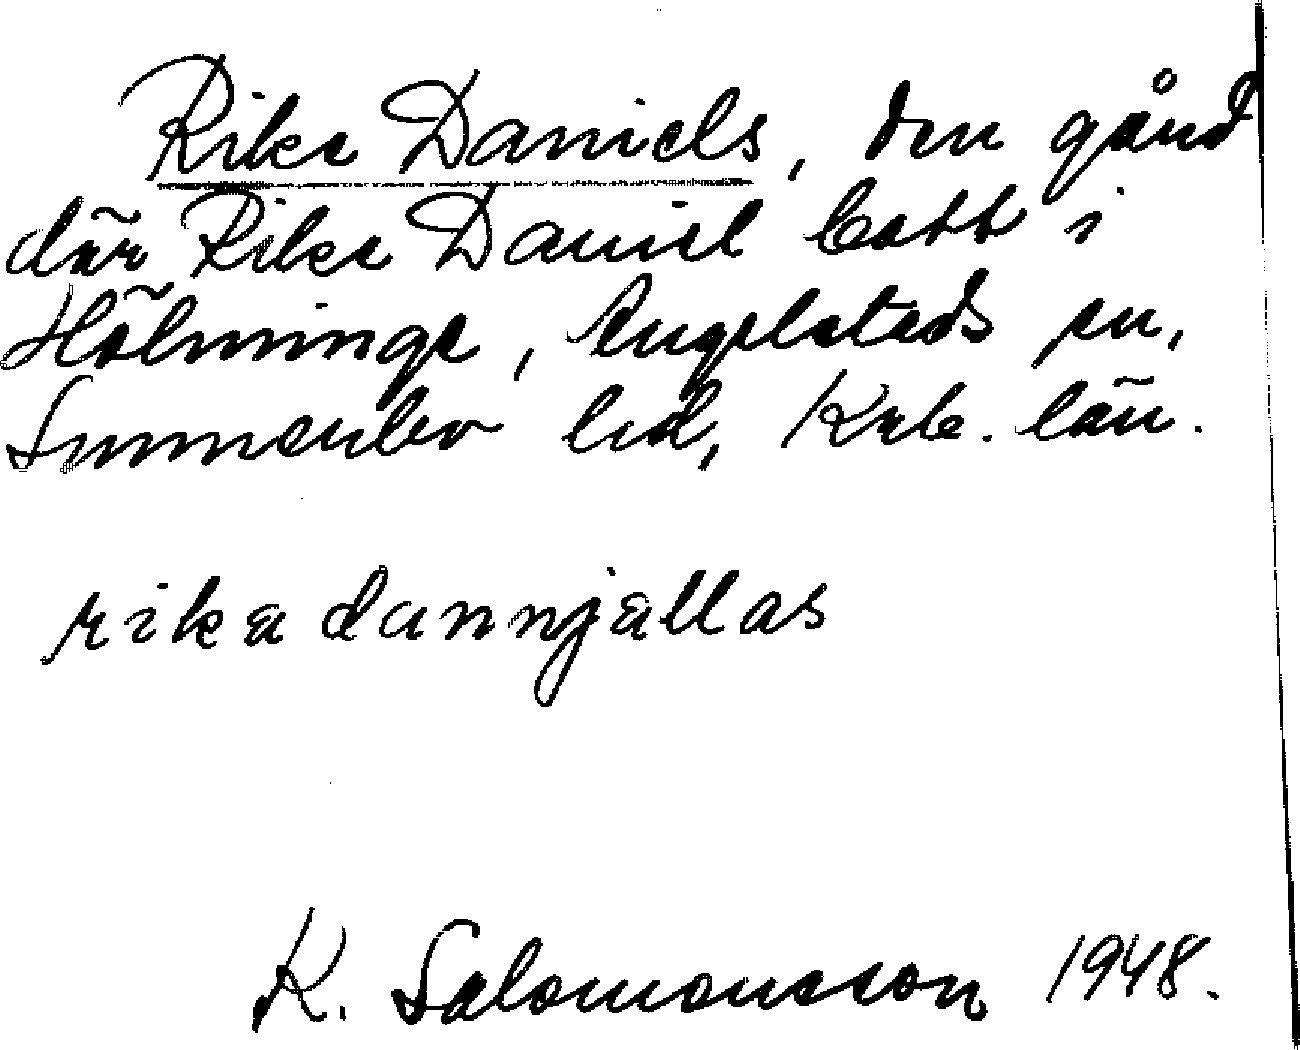 Rika Daniels, den gård
där Rika Daniel bott i
Hölminge, Ängelstads sn,
Sunnerbo hd, Krb. län.
rika dannjällas
K. Salomonsson 1948.